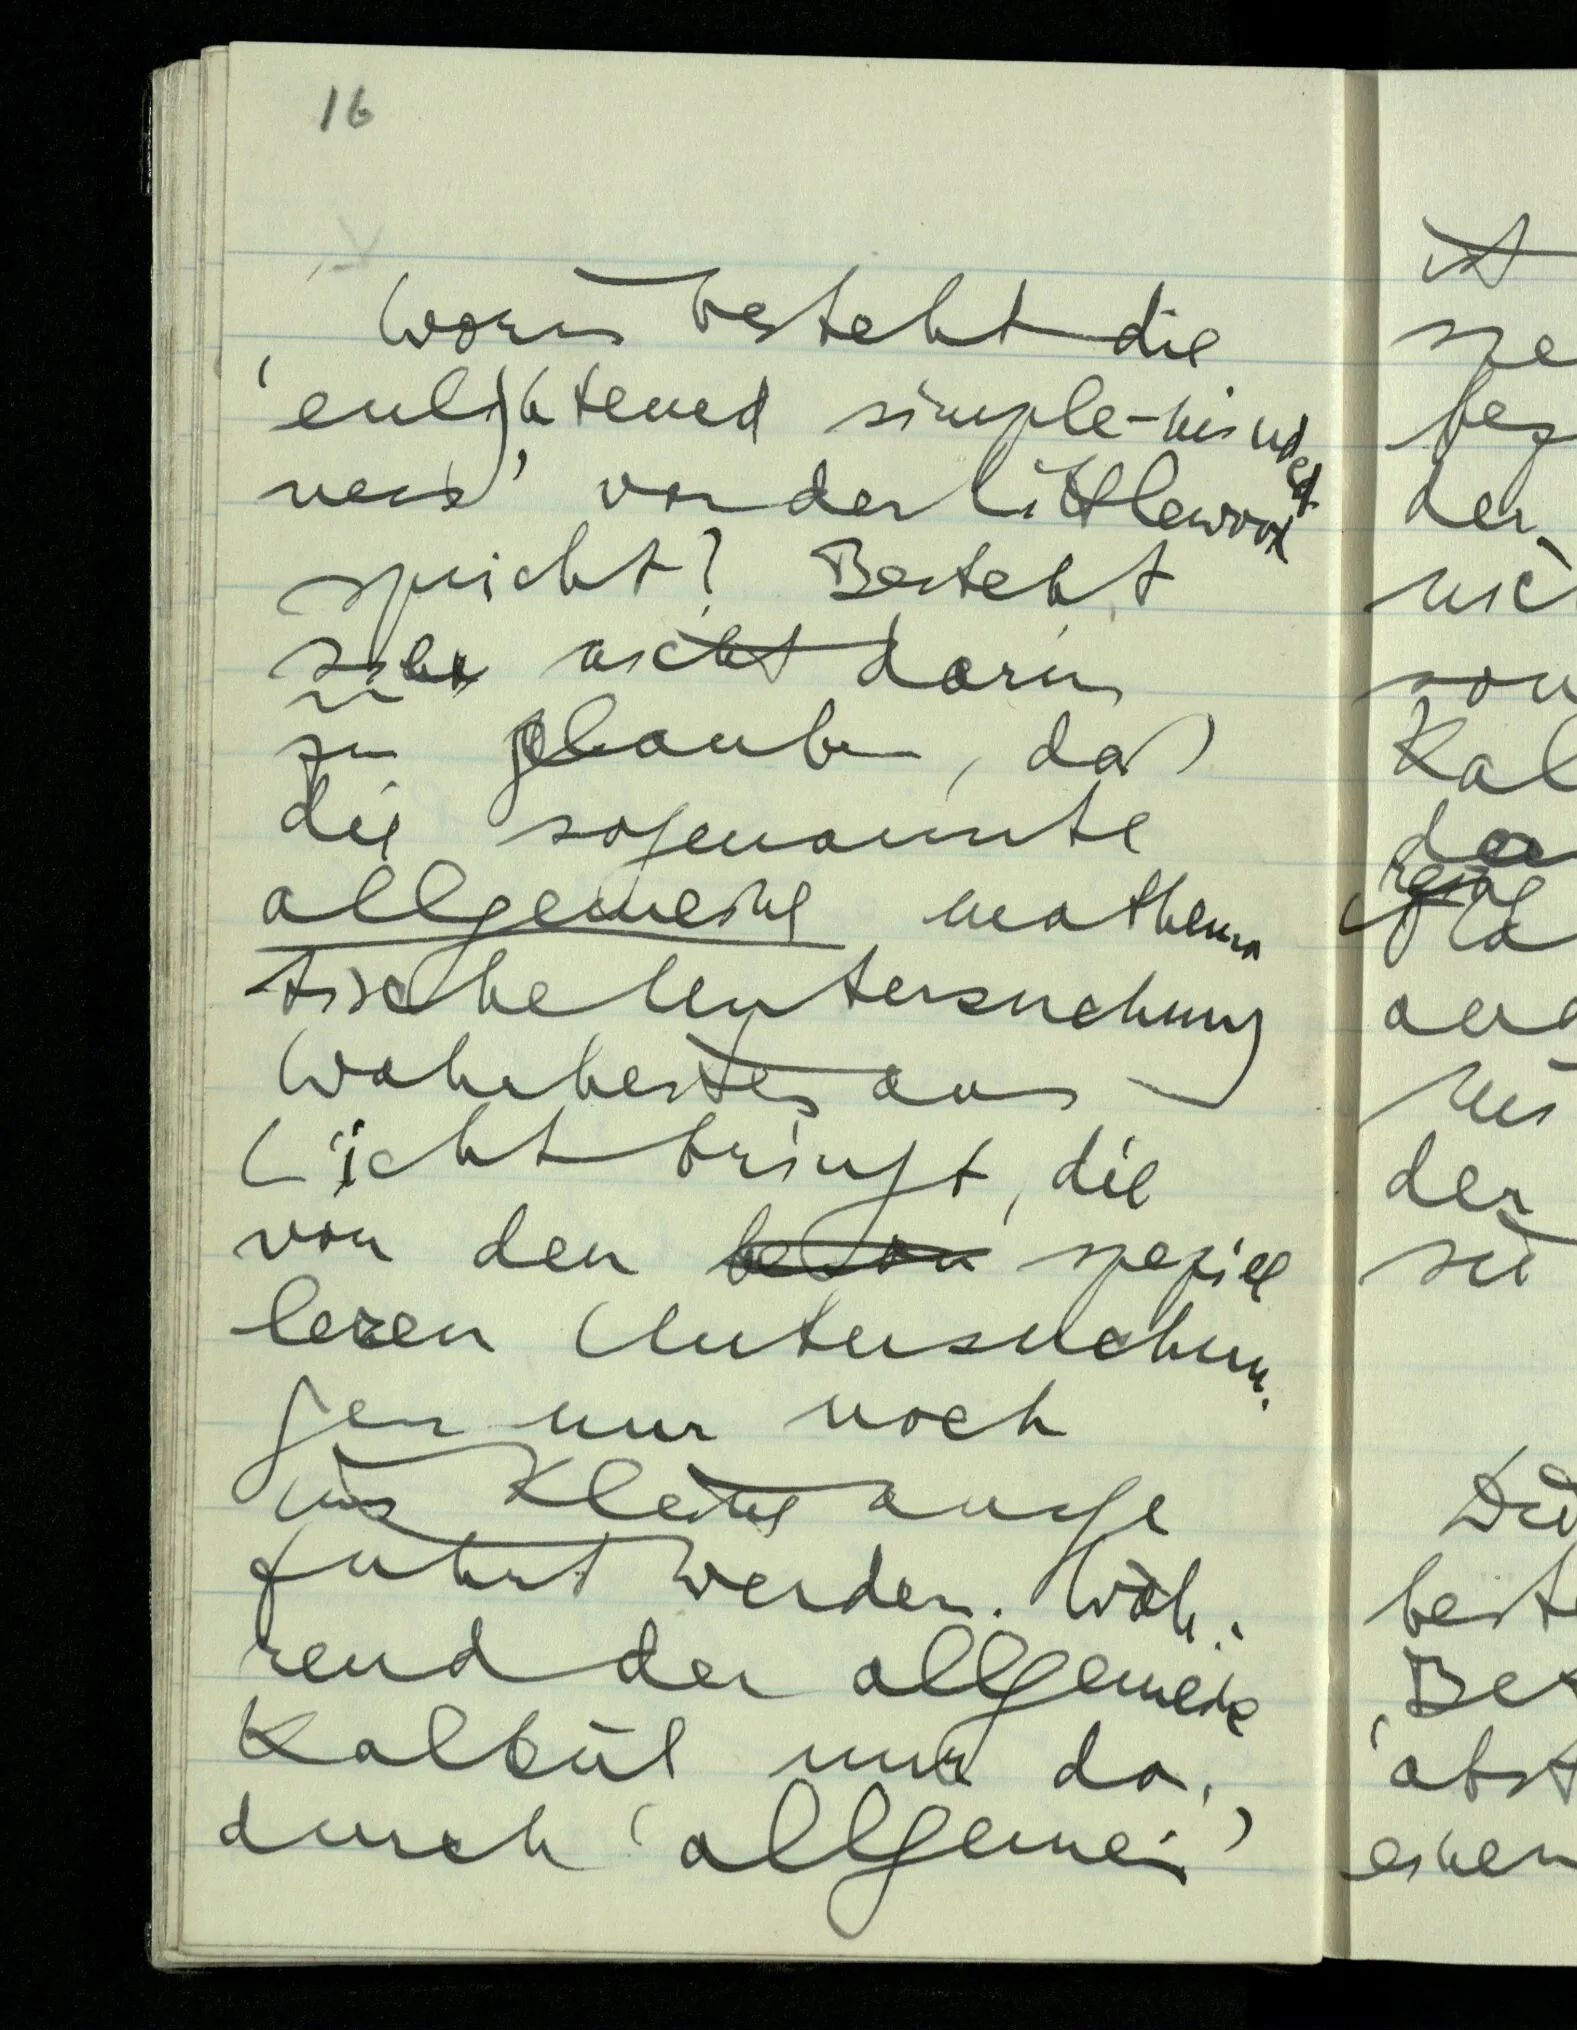 16
Worin besteht die
'enlightened simple-minded
ness' von der Littlewood
spricht? Besteht
sie nicht darin
zu glauben, daß
die sogenannte
allgemeine mathema
tische Untersuchung
Wahrheiten ans
Licht bringt, die
von den beson speziel
leren Untersuchun-
gen nur noch
ins Kleine ausge
führt werden. Wäh-
rend der allgemeine
Kalkül nur da-
durch 'allgemein'
ist
spe
bez
der
nic
son
Kal
der
auc
Mi
der
sie
Die
beste
Bew
'abst
einen